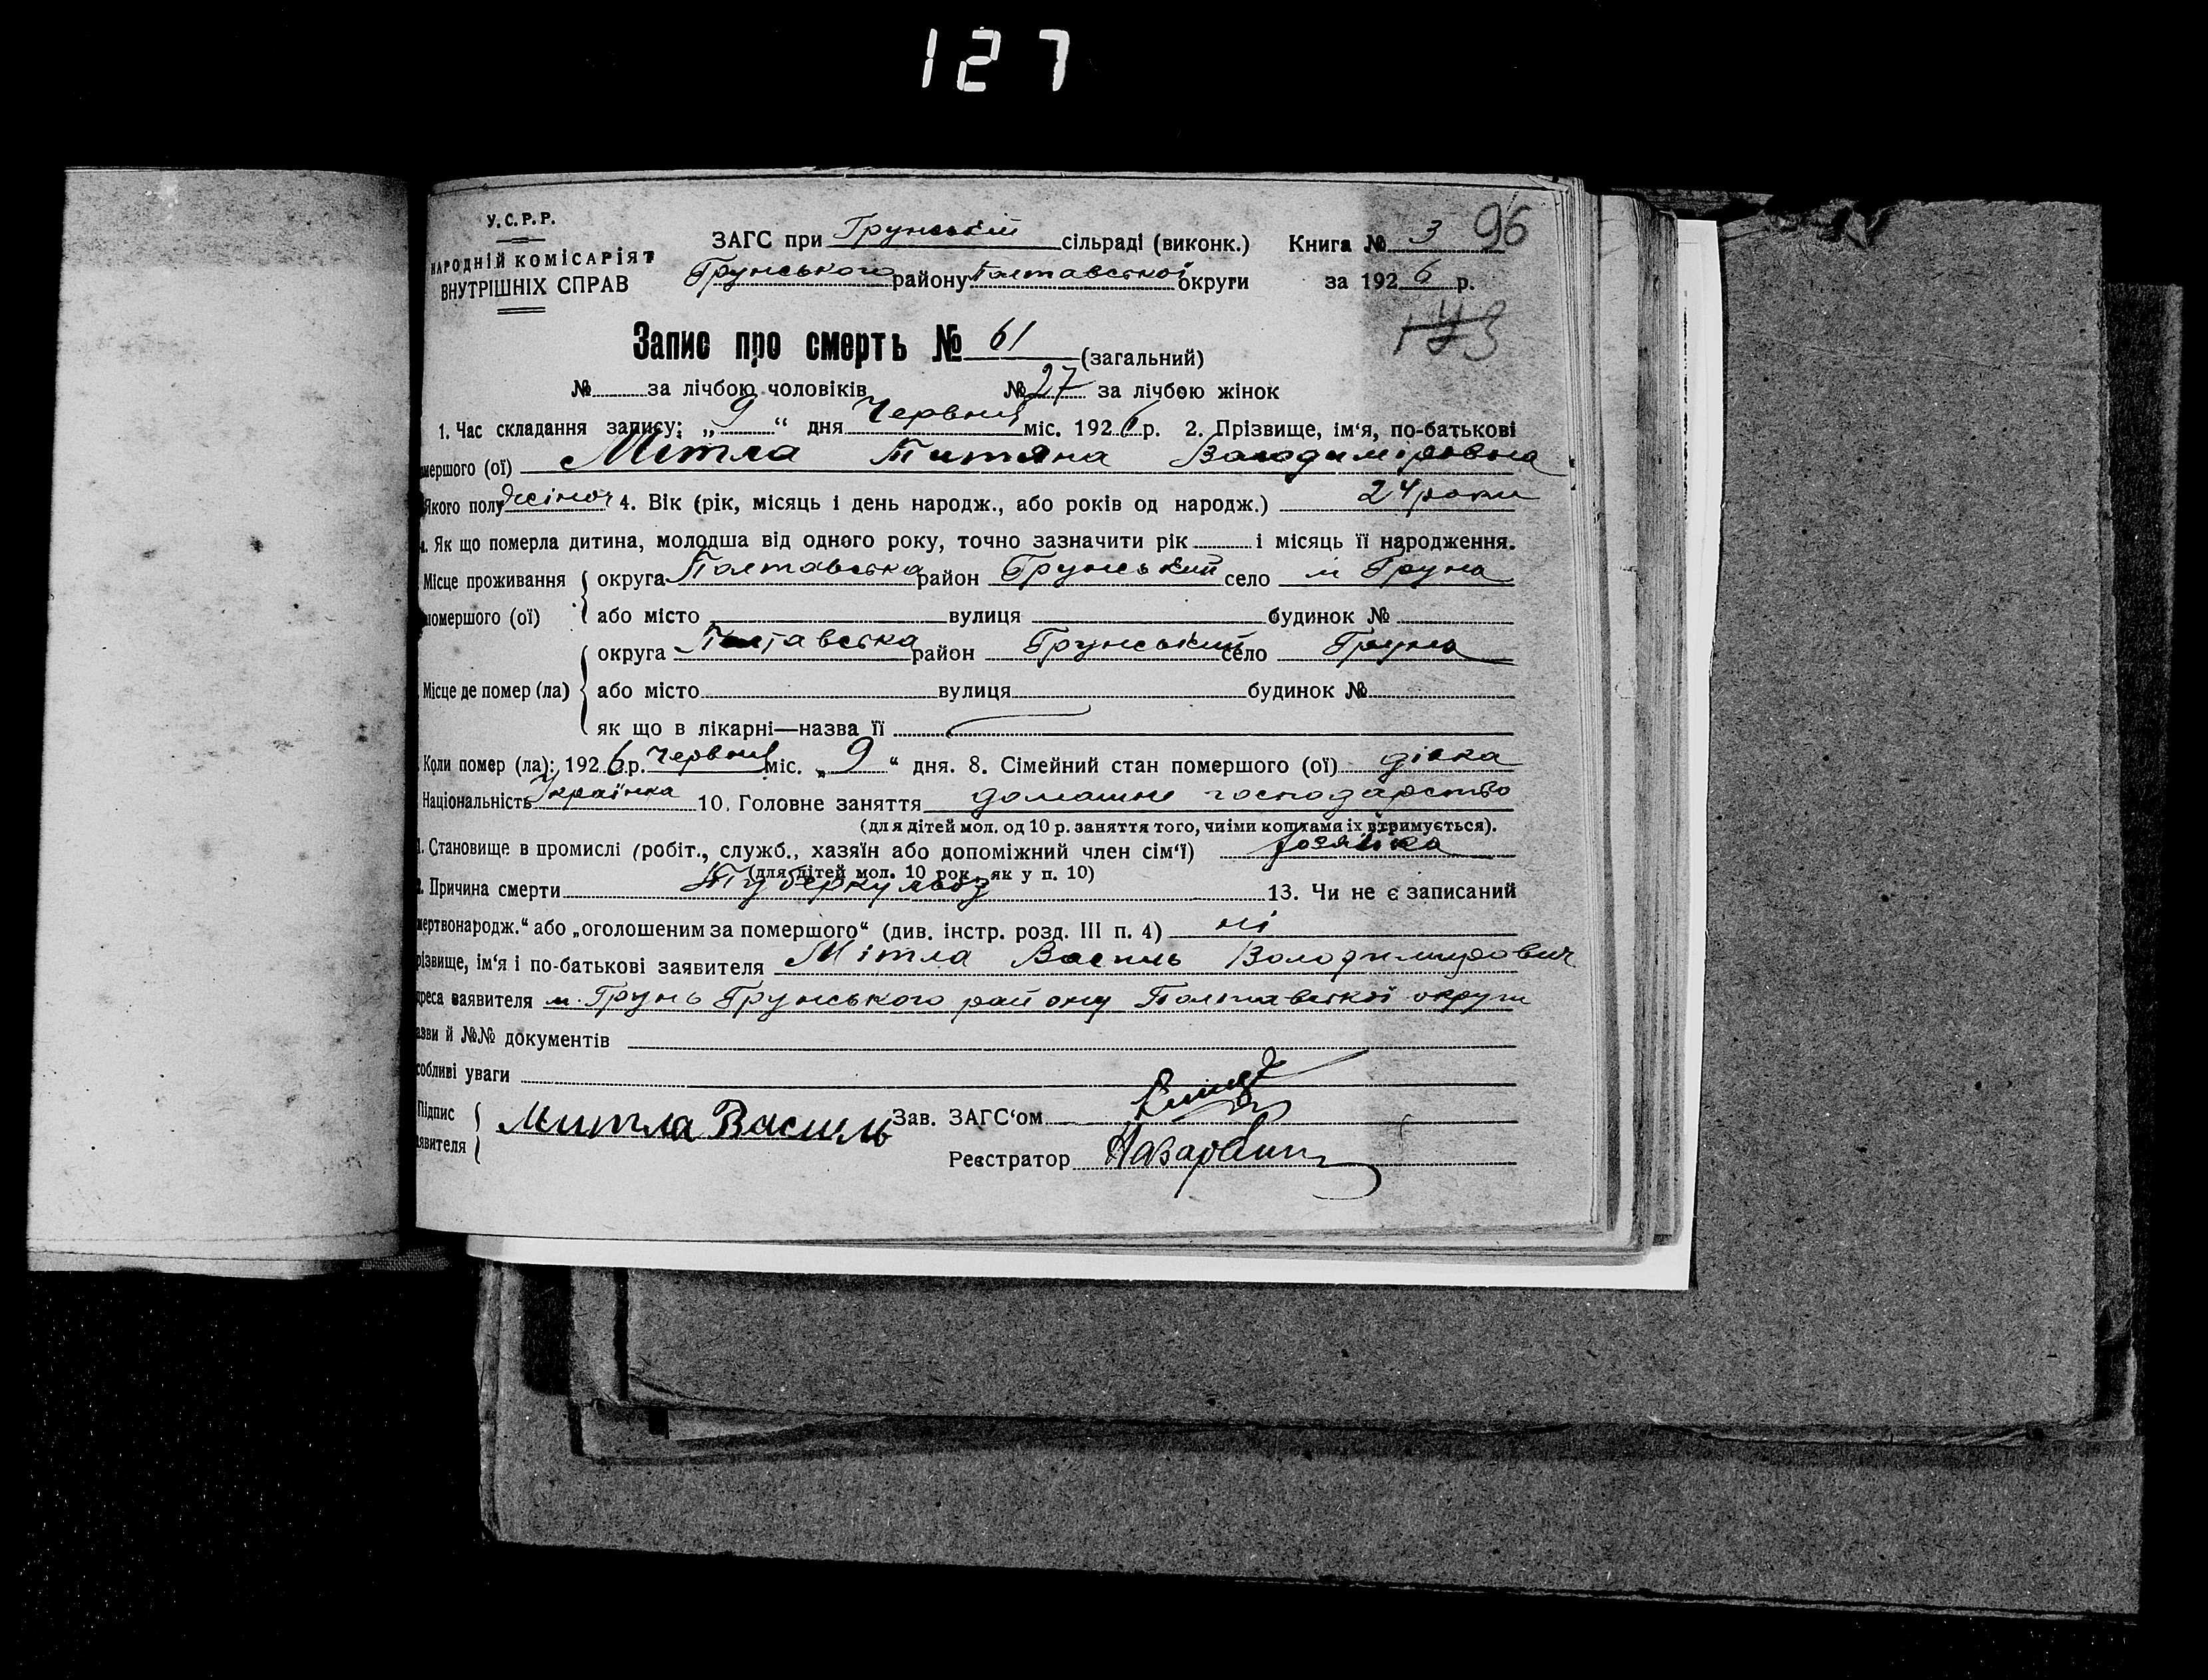 127
У.С.Р.Р.
НАРОДНІЙ КОМІСАРІЯТ
ВНУТРІШНІХ СПРАВ
ЗАГС при Грунській сільраді (виконк.) Книга № 3 96
Грунського району Полтавської округи за 1926 р.
Запис про смерть № 61 (загальний)
№ за лічбою чоловіків № 27 за лічбою жінок
1. Час складання запису: „9“ дня Червня міс. 1926 р. 2. Прізвище, ім'я, по-батькові
мершого (ої) Мітла Титяна Володиміровна
Якого полу жіноч 4. Вік (рік, місяць і день народж., або років од народж.) 24 роки
Як що померла дитина, молодша від одного року, точно зазначити рік і місяць її народження.
Місце проживання округа Полтавська район Грунський село м Груна
помершого (ої) або місто вулиця будинок №
округа Полтавська район Грунський село Груна
Місце де помер (ла) або місто вулиця будинок №
як що в лікарні—назва її
Коли помер (ла): 1926 р. Червня міс. „9“ дня. 8. Сімейний стан помершого (ої) дівка
Національність Українка 10. Головне заняття домашне господарство
(для дітей мол. од 10 р. заняття того, чиїми коштами їх втримується).
1. Становище в промислі (робіт., служб., хазяїн або допоміжний член сім'ї) хозяйка
(для дітей мол. 10 рок, як у п. 10)
Причина смерти Туберкульоз 13. Чи не є записаний
мертвонародж.“ або „оголошеним за помершого“ (див. інстр. розд. III п. 4) ні
різвище, ім'я і по-батькові заявителя Мітла Василь Володимирович
дреса заявителя м. Грунь Грунського району Полтавської округи
азви й №№ документів
собливі уваги
Підпис Митла Василь Зав. ЗАГС'ом
явителя
Реєстратор